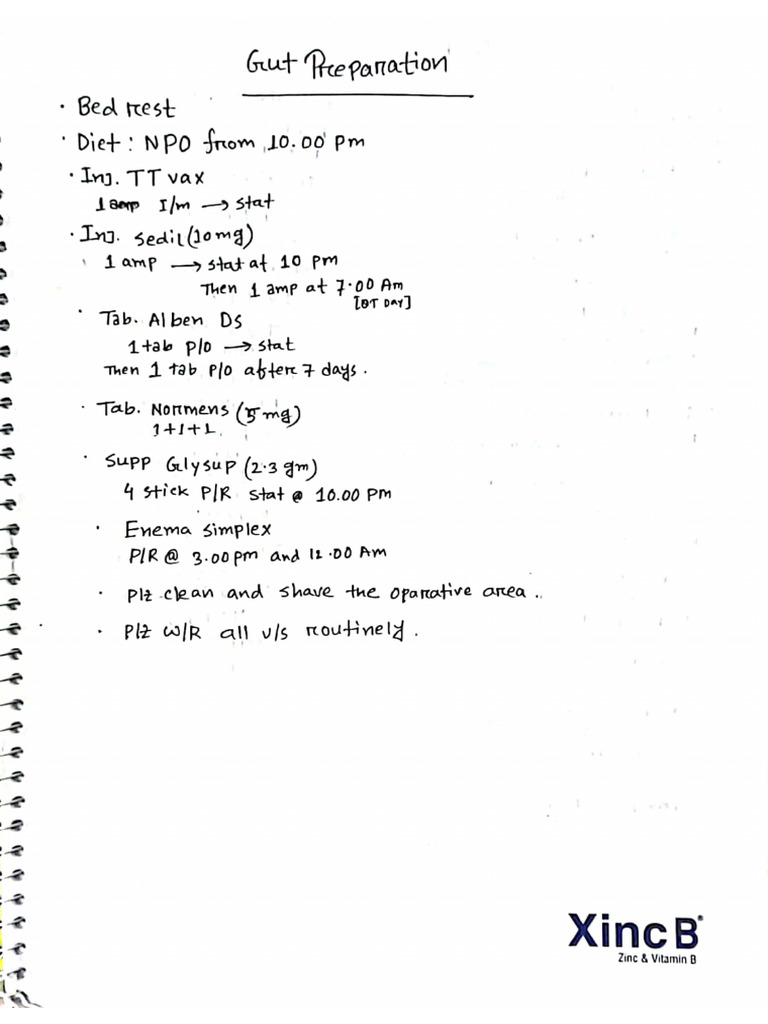 Gut Preparation
• Bed rest
• Diet : NPO from 10.00 pm
• Inj. TT vax
1 amp I/m → stat
• Inj. Sedil (10mg)
1 amp → stat at 10 pm
Then 1 amp at 7.00 Am
[OT DAY]
• Tab. Alben Ds
1 tab P/o → stat
Then 1 tab P/o after 7 days.
• Tab. Normens (5 mg)
1+1+1.
• Supp Glysup (2.3 gm)
4 stick P/R stat @ 10.00 PM
• Enema simplex
P/R @ 3.00 pm and 12.00 Am
• Plz clean and shave the oparative area.
• Plz W/R all v/s routinely.
XincB®
Zinc & Vitamin B